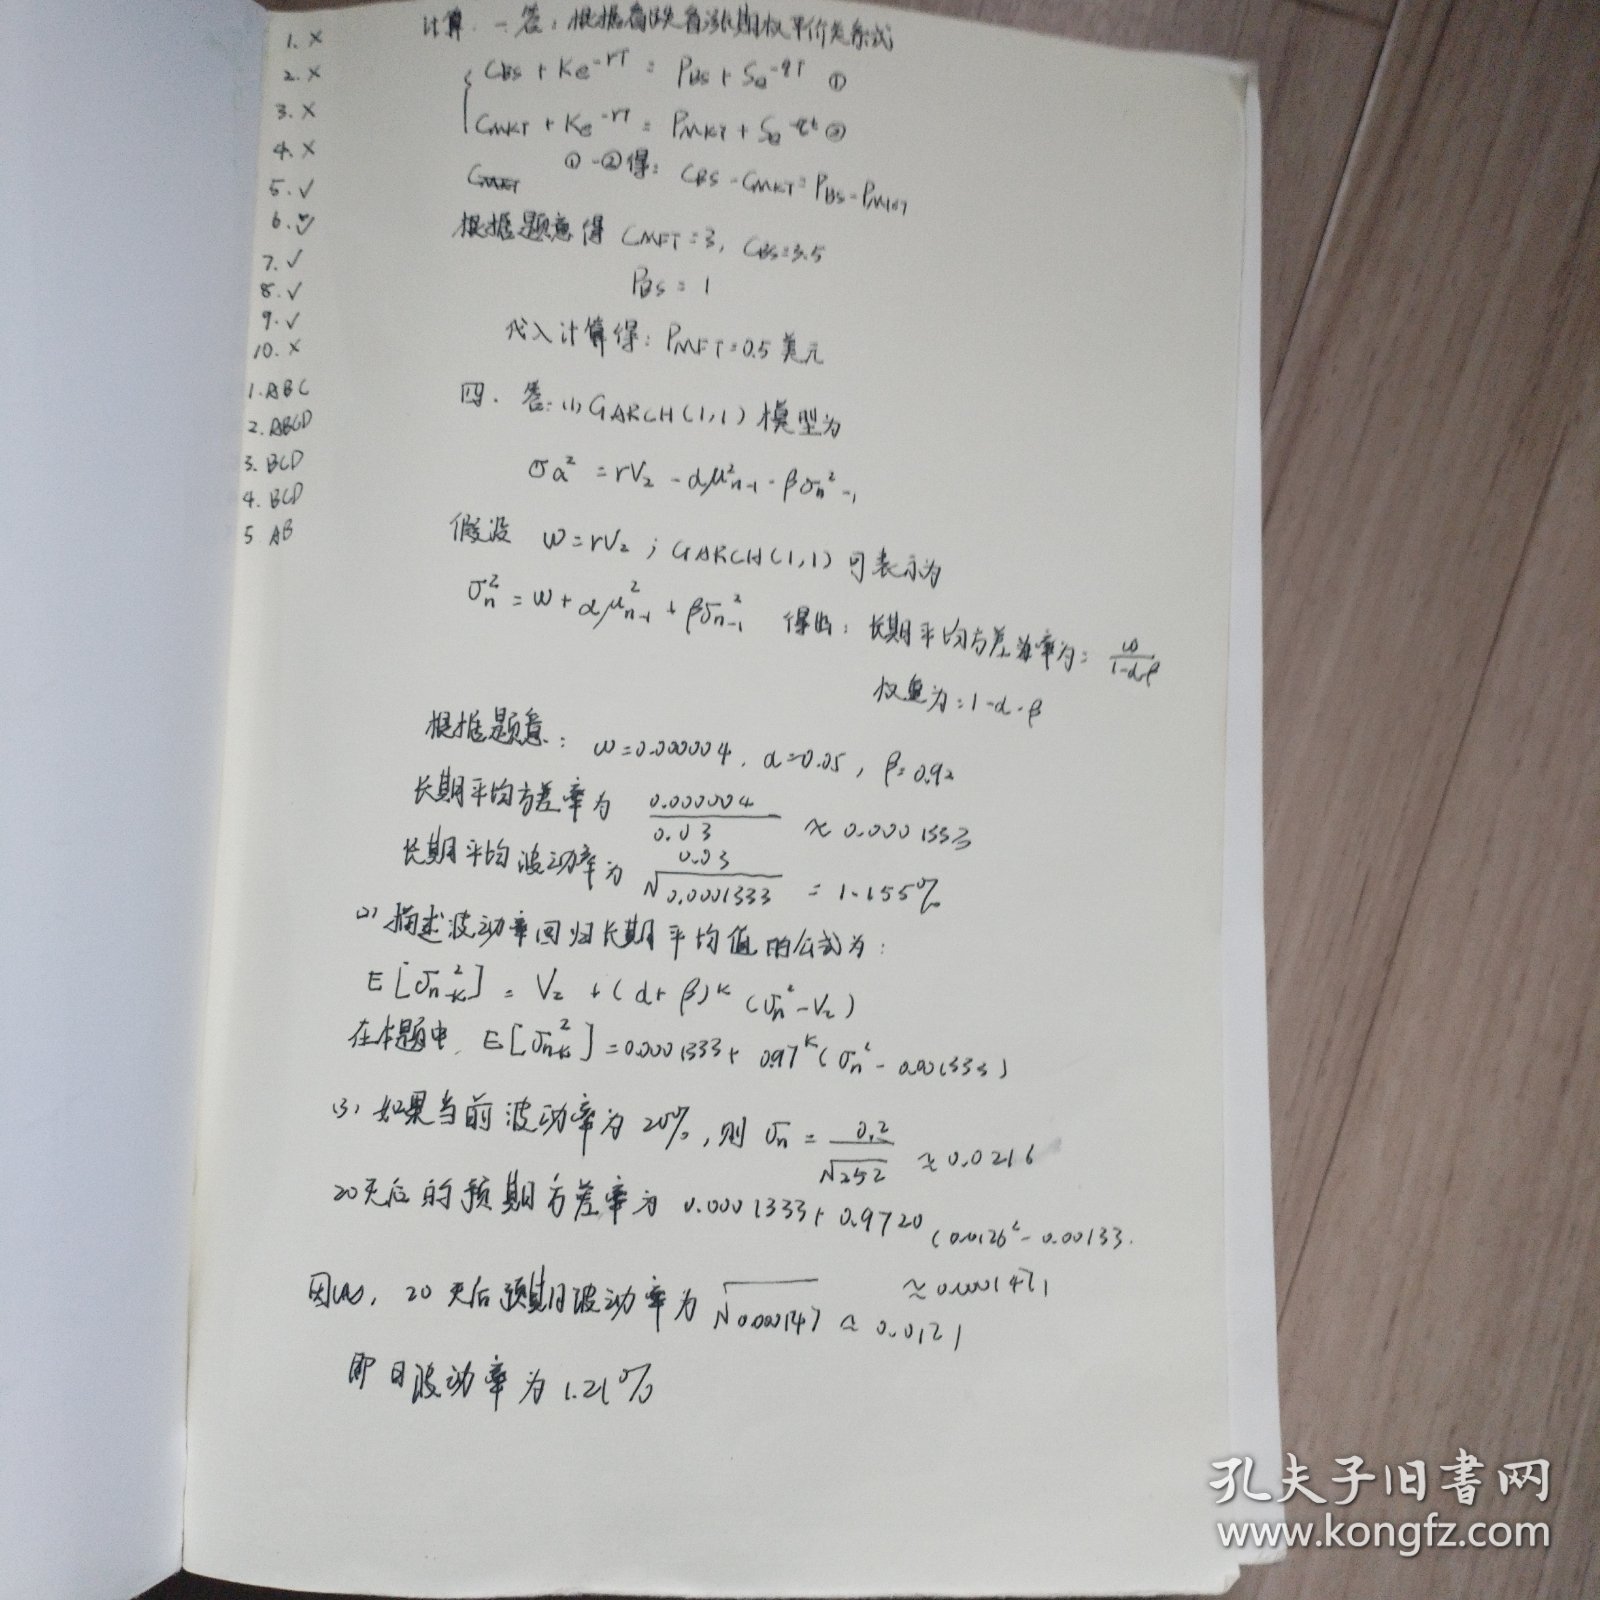 1. ×
2. ×
3. ×
4. ×
5. √
6. √
7. √
8. √
9. √
10. ×
1. ABC
2. ABCD
3. BCD
4. BCD
5 AB
计算. 一答: 根据看跌看涨期权平价关系式
CBS + Ke^-rT = PBS + Se^-qT ①
CMKT + Ke^-rT = PMKT + Se^-qt ②
①-②得: CBS - CMKT = PBS - PMKT
根据题意得 CMFT = 3, CBS = 3.5
PBS = 1
代入计算得: PMFT = 0.5 美元
四. 答: (1) GARCH(1,1) 模型为
σa² = rV₂ - αμ²n-1 - βσn²-1
假设 ω = rV₂ ; GARCH(1,1) 可表示为
σn² = ω + αμ²n-1 + βσ²n-1 得出: 长期平均方差率为: ω/1-α-β
权重为: 1-α-β
根据题意: ω=0.000004, α=0.05, β=0.92
长期平均方差率为 0.000004/0.03 ≈ 0.0001333
长期平均波动率为 √0.0001333 = 1.155%
(2) 描述波动率回归长期平均值的公式为:
E[σ²n+k] = V₂ + (α+β)^k (σn²-V₂)
在本题中, E[σ²n+k] = 0.0001333 + 0.97^k (σn² - 0.001333)
(3) 如果当前波动率为 20%, 则 σn = 0.2/√252 ≈ 0.0216
20天后的预期方差率为 0.0001333 + 0.9720 (0.0126² - 0.00133.
≈ 0.0001471
因此, 20天后预期波动率为 √0.000147 ≈ 0.0121
即日波动率为 1.21%
孔夫子旧书网
www.kongfz.com